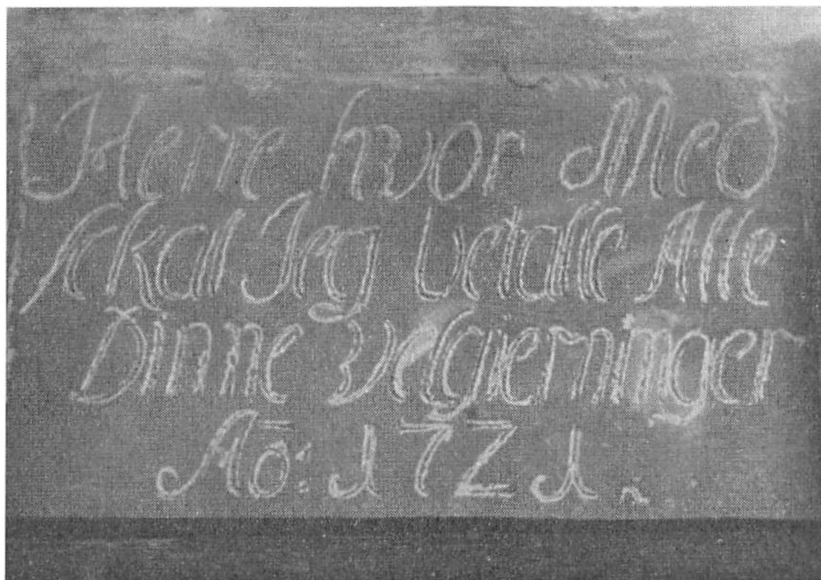 Herre hvor Med
skal Jeg betalle Alle
Dinne velgierninger
Aō: 1721.